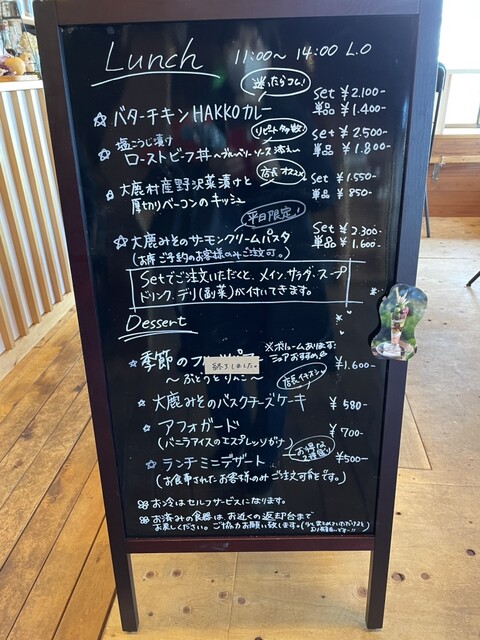 Lunch 11:00〜 14:00 L.O
迷ったらコレ!
☆ バターチキンHAKKOカレー set ¥2.100-
単品 ¥1.400-
リピート多数
☆ 塩こうじ漬け
ローストビーフ丼 〜ブルーベリーソース添え〜 set ¥2.500-
単品 ¥1.800-
店長オススメ
☆ 大鹿村産野沢菜漬けと
厚切りベーコンのキッシュ set ¥1.550-
単品 ¥850-
平日限定!
☆ 大鹿みそのサーモンクリームパスタ set ¥2.300-
単品 ¥1.600-
(お席ご予約のお客様のみご注文可。)
Setでご注文いただくと、メイン、サラダ、スープ
ドリンク、デリ(副菜)が付いてきます。
Dessert
※ボリュームあります!
シェアおすすめ
☆ 季節の ¥1.600-
終了しました。
〜ぶどうとりんご〜
☆ 大鹿みそのバスクチーズケーキ ¥580-
☆ アフォガード ¥700-
(バニラアイスのエスプレッソがけ)
お得な
2種盛り
☆ ランチミニデザート ¥500-
(お食事されたお客様のみご注文可能です。)
お冷はセルフサービスになります。
お済みの食器は、お近くの返却台まで
お戻しください。ご協力お願い致します。